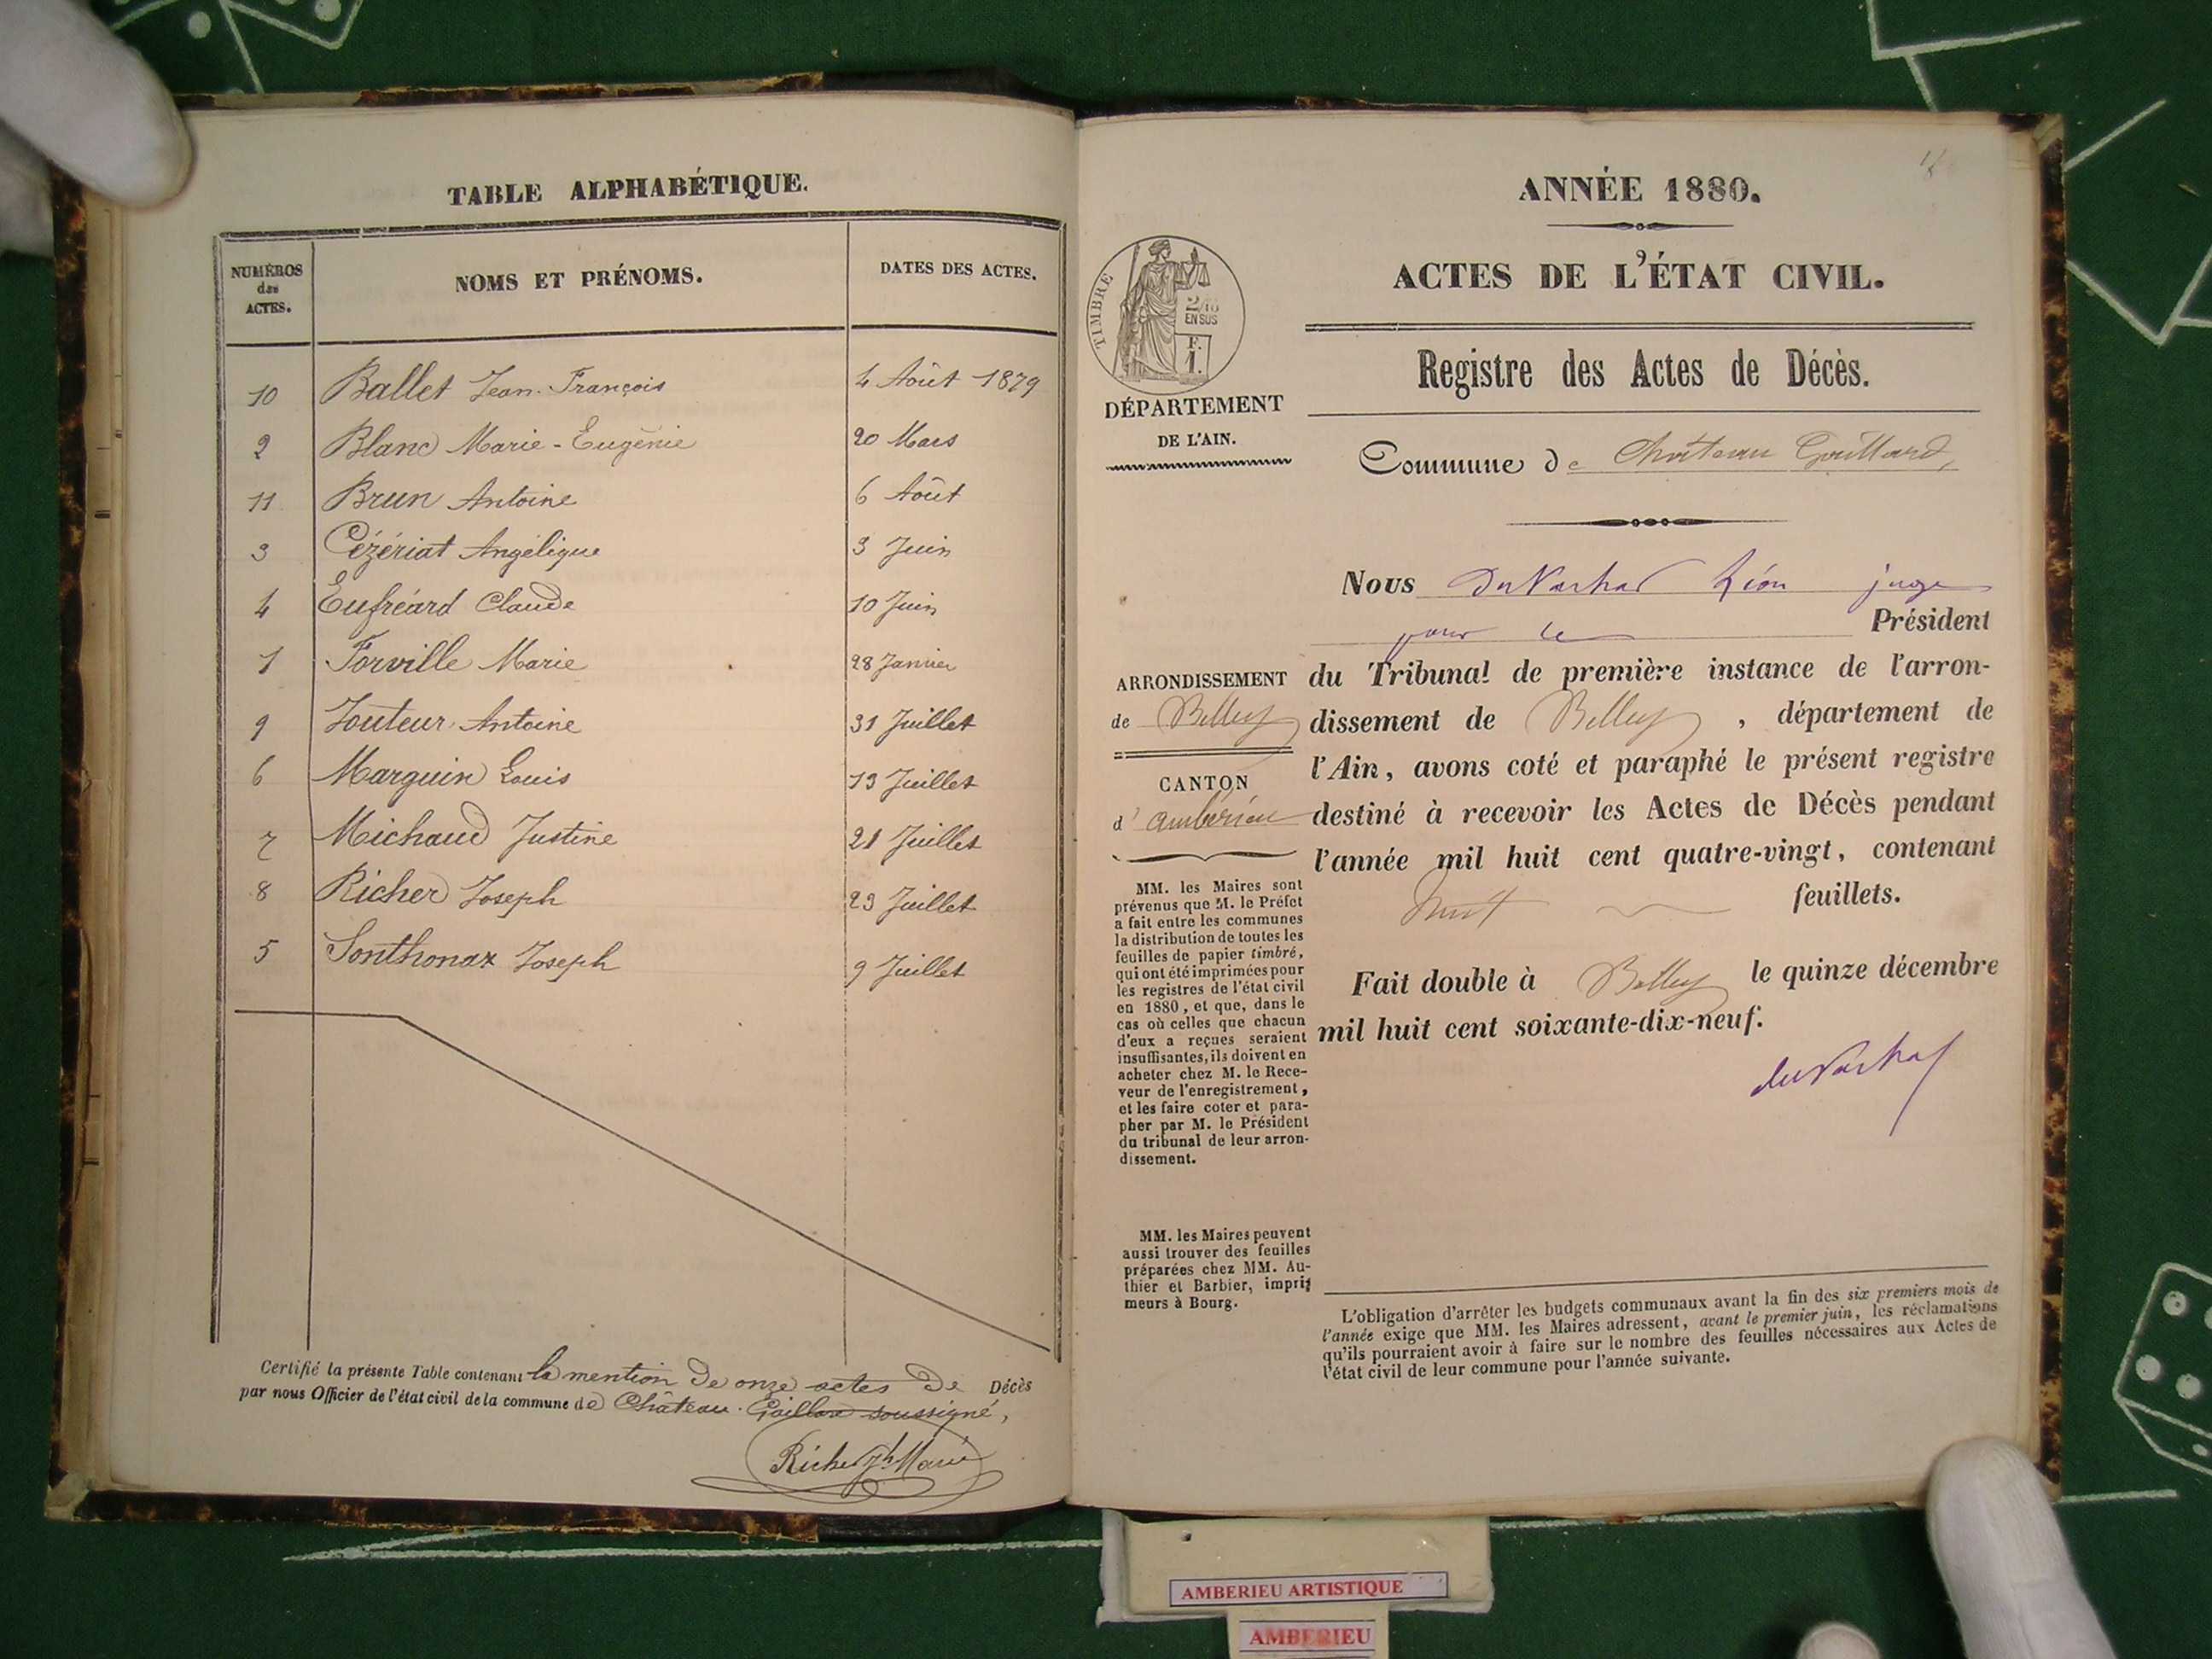 TABLE ALPHABÉTIQUE.
NUMÉROS des ACTES.
NOMS ET PRÉNOMS.
DATES DES ACTES.
10 Ballet Jean-François 4 Août 1879
2 Blanc Marie-Eugènie 20 Mars
11 Brun Antoine 6 Août
3 Cézériat Angélique 3 Juin
4 Eufréard Claude 10 Juin
1 Forville Marie 28 Janvier
9 Jouteur Antoine 31 Juillet
6 Marguin Louis 13 Juillet
7 Michaud Justine 21 Juillet
8 Richer Joseph 23 Juillet
5 Sonthonax Joseph 9 Juillet
Certifié la présente Table contenant la mention de onze actes de Décès
par nous Officier de l'état civil de la commune de Château-Gaillard soussigné,
Richer Jh Marie
ANNÉE 1880.
ACTES DE L'ÉTAT CIVIL.
TIMBRE
2/10
EN SUS
F.
1.
Registre des Actes de Décès.
DÉPARTEMENT
DE L'AIN.
Commune de Château Gaillard,
Nous Léon juge
pour le Président
ARRONDISSEMENT
de Belley
CANTON
d'ambérieu
du Tribunal de première instance de l'arron-
dissement de Belley, département de
l'Ain, avons coté et paraphé le présent registre
destiné à recevoir les Actes de Décès pendant
l'année mil huit cent quatre-vingt, contenant
huit feuillets.
Fait double à Belley le quinze décembre
mil huit cent soixante-dix-neuf.
MM. les Maires sont
prévenus que M. le Préfet
a fait entre les communes
la distribution de toutes les
feuilles de papier timbré,
qui ont été imprimées pour
les registres de l'état civil
en 1880, et que, dans le
cas où celles que chacun
d'eux a reçues seraient
insuffisantes, ils doivent en
acheter chez M. le Rece-
veur de l'enregistrement,
et les faire coter et para-
pher par M. le Président
du tribunal de leur arron-
dissement.
MM. les Maires peuvent
aussi trouver des feuilles
préparées chez MM. Au-
thier et Barbier, impri-
meurs à Bourg.
L'obligation d'arrêter les budgets communaux avant la fin des six premiers mois de
l'année exige que MM. les Maires adressent, avant le premier juin, les réclamations
qu'ils pourraient avoir à faire sur le nombre des feuilles nécessaires aux Actes de
l'état civil de leur commune pour l'année suivante.
AMBERIEU ARTISTIQUE
AMBERIEU